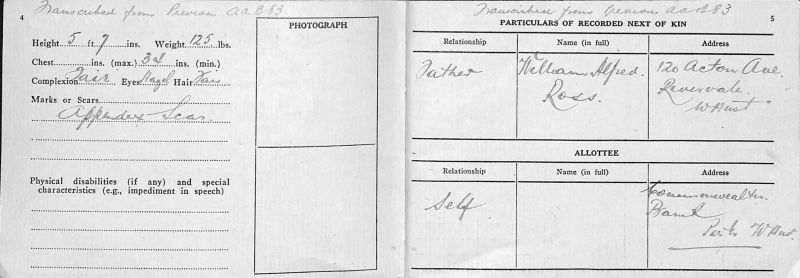 Transcribed from Previous AAB83
4
Height 5 ft 7 ins. Weight 125 lbs.
Chest ins. (max.) 34 ins. (min.)
Complexion Fair Eyes Hazel Hair Fair
Marks or Scars
Appendex Scar.
Physical disabilities (if any) and special
characteristics (e.g., impediment in speech)
PHOTOGRAPH
Transcribed from previous AAB83
PARTICULARS OF RECORDED NEXT OF KIN
5
Relationship Name (in full) Address
Father William Alfred 120 Acton Ave.
Ross. Rivervale.
W Aust
ALLOTTEE
Relationship Name (in full) Address
Self Commonwealth
Bank
Perth W Aust.